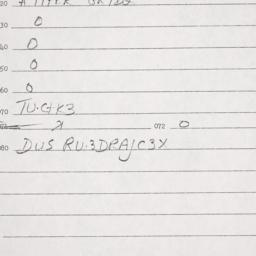 30 0
40 0
50 0
60 0
70 TU.C+K3
072 0
80 DUS RU.3DRAJC3X